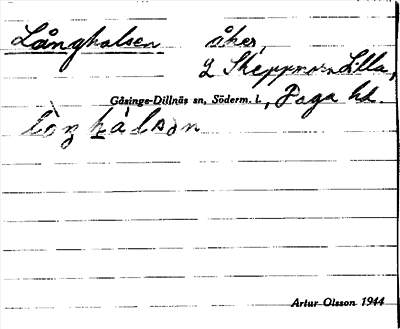 Långhalsen åker,
2 Skeppmora Lilla,
Gåsinge-Dillnäs sn, Söderm. l., Daga hd.
Artur Olsson 1944